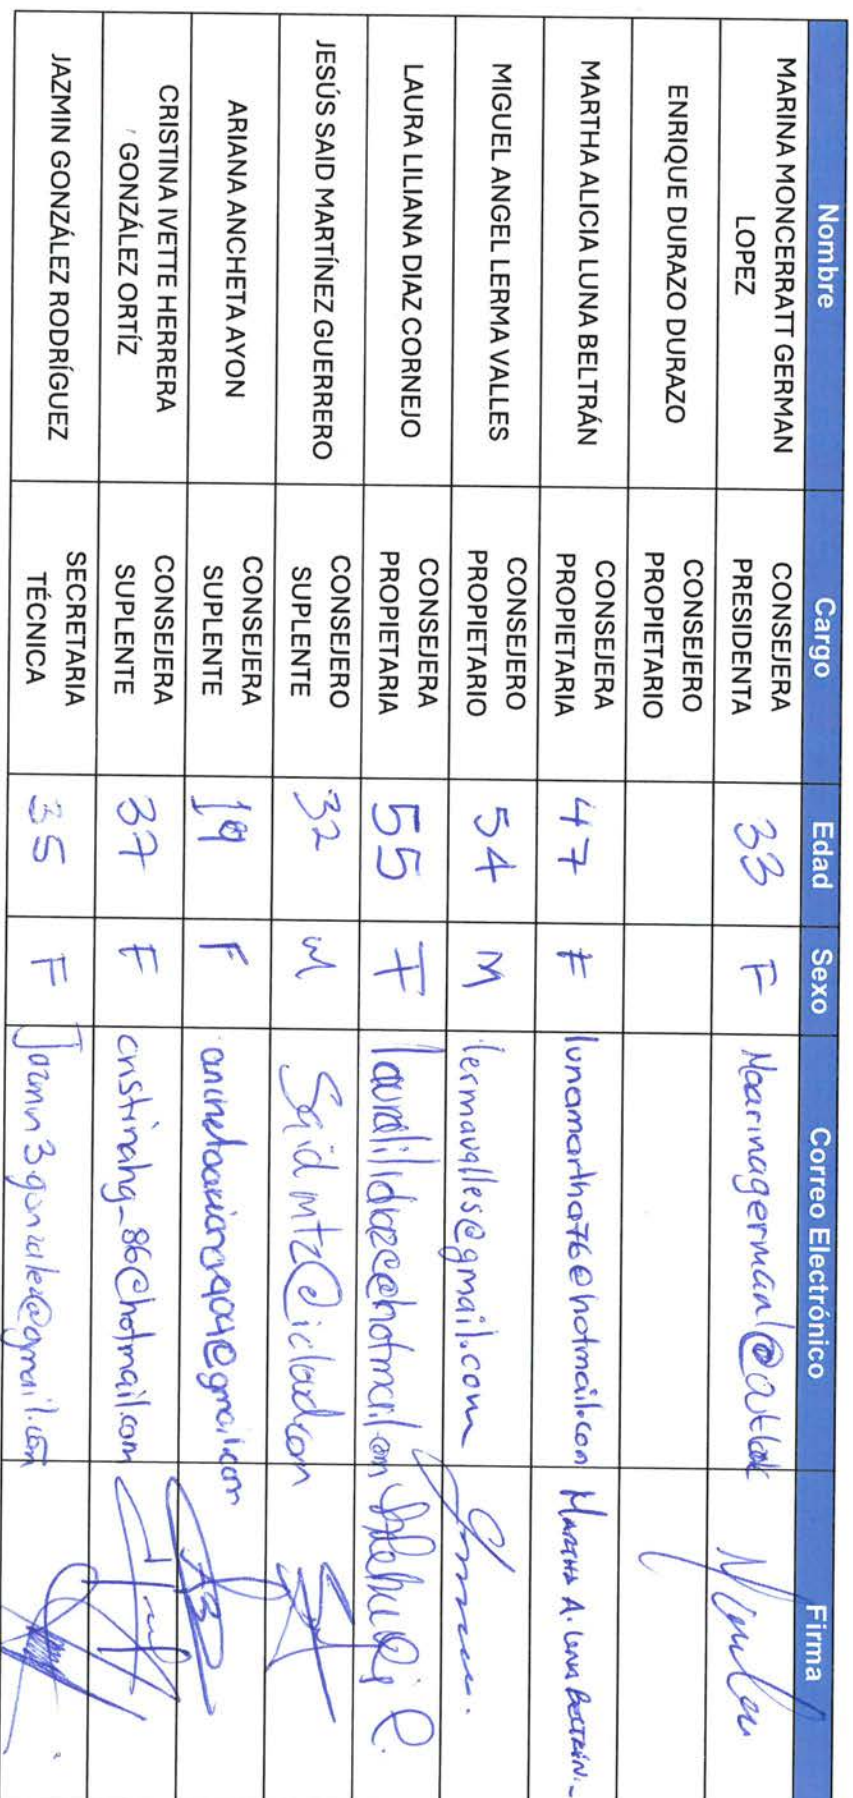 Nombre Cargo Edad Sexo Correo Electrónico Firma
MARINA MONCERRATT GERMAN
LOPEZ
CONSEJERA
PRESIDENTA
33 F
ENRIQUE DURAZO DURAZO
CONSEJERO
PROPIETARIO
MARTHA ALICIA LUNA BELTRÁN
CONSEJERA
PROPIETARIA
47 F lunamartha76@hotmail.com MARTHA A. LUNA BELTRÁN.-
MIGUEL ANGEL LERMA VALLES
CONSEJERO
PROPIETARIO
54 M lermavalles@gmail.com
LAURA LILIANA DIAZ CORNEJO
CONSEJERA
PROPIETARIA
55 F
JESÚS SAID MARTÍNEZ GUERRERO
CONSEJERO
SUPLENTE
32 M
ARIANA ANCHETA AYON
CONSEJERA
SUPLENTE
19 F
CRISTINA IVETTE HERRERA
GONZÁLEZ ORTÍZ
CONSEJERA
SUPLENTE
37 F cristinahg_86@hotmail.com
JAZMIN GONZÁLEZ RODRÍGUEZ
SECRETARIA
TÉCNICA
35 F